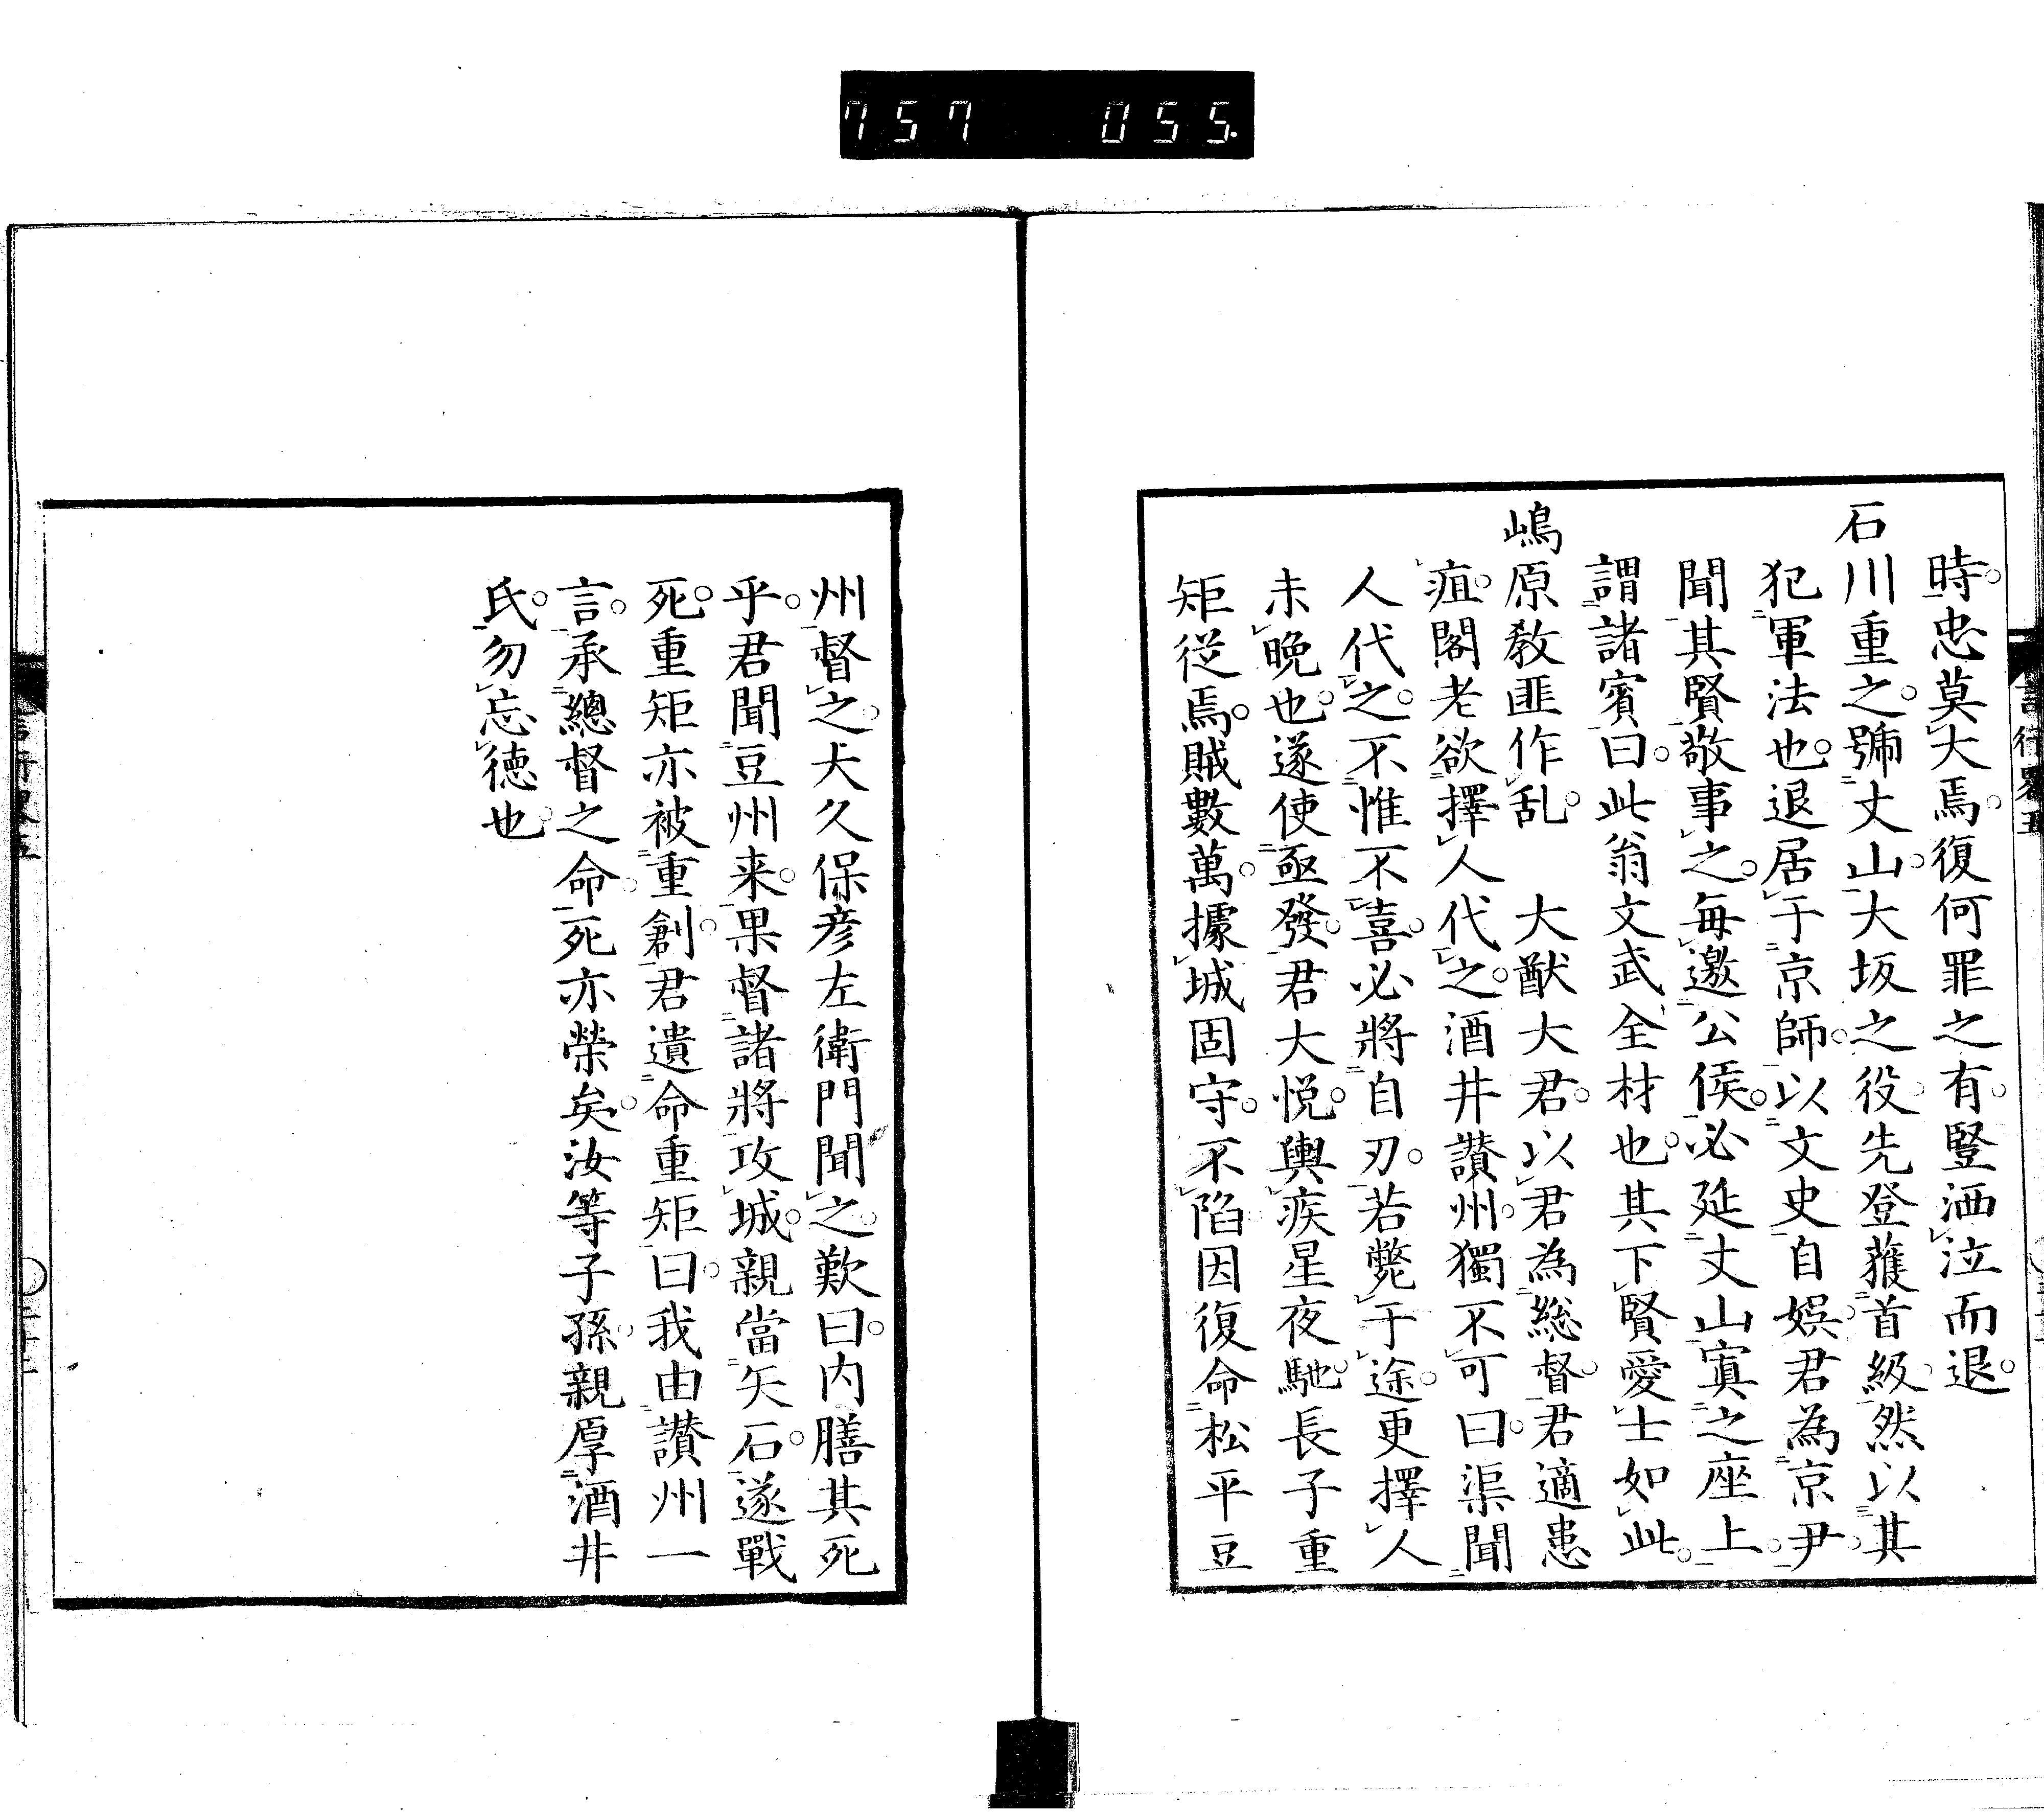 757 055.
時。忠莫大焉。復何罪之有。豎洒泣而退。
石川重之。號丈山。大坂之役。先登獲首級。然以其
犯軍法也。退居于京師。以文史自娯。君為京尹。
聞其賢。敬事之。毎邀公侯。必延丈山寘之座上。
謂諸賓曰。此翁文武全材也。其下賢愛士如此。
嶋原教匪作乱。 大猷大君。以君為総督。君適患
疽。閣老欲擇人代之。酒井讃州。獨不可曰。渠聞
人代之。不惟不喜。必將自刃。若斃于途。更擇人
未晩也。遂使亟發。君大悦。輿疾星夜馳。長子重
矩従焉。賊數萬。據城固守。不陷。因復命松平豆
州督之。大久保彦左衛門聞之。歎曰。内膳其死
乎。君聞豆州来。果督諸將攻城。親當矢石。遂戰
死。重矩亦被重創。君遺命重矩曰。我由讃州一
言。承總督之命。死亦榮矣。汝等子孫。親厚酒井
氏。勿忘徳也。